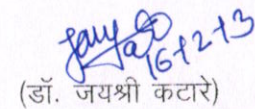 16+2+13
(डॉ. जयश्री कटारे)